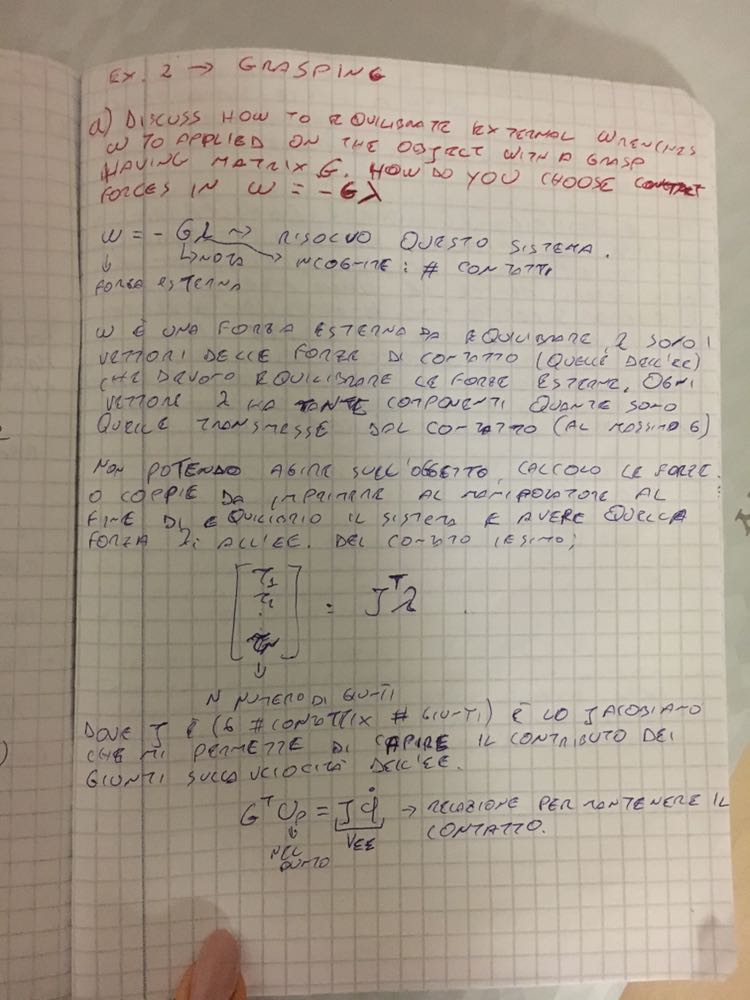 EX. 2 → GRASPING
a) DISCUSS HOW TO EQUILIBRATE EXTERNAL WRENCHES
W TO APPLIED ON THE OBJECT WITH A GRASP
HAVING MATRIX G. HOW DO YOU CHOOSE CONTACT
FORCES IN W = -Gλ
W = -Gλ → RISOLVO QUESTO SISTEMA.
↓ ↳NOTA → INCOGNITE: # CONTATTI
FORZA ESTERNA
W È UNA FORZA ESTERNA DA EQUILIBRARE, λ SONO I
VETTORI DELLE FORZE DI CONTATTO (QUELLE DELL'EE)
CHE DEVONO EQUILIBRARE LE FORZE ESTERNE. OGNI
VETTORE λ HA TANTE COMPONENTI QUANTE SONO
QUELLE TRANSMESSE DAL CONTATTO (AL MASSIMO 6)
NON POTENDO AGIRE SULL'OGGETTO, CALCOLO LE FORZE
O COPPIE DA IMPRIMERE AL MANIPOLATORE AL
FINE DI EQUILIBRIO IL SISTEMA E AVERE QUELLA
FORZA λi ALL'EE. DEL CONTATTO IESIMO;
[τ1 τ2 . τN] = J^T λ
↓
N NUMERO DI GIUNTI
DOVE J È (6 #CONTATTI X # GIUNTI) È LO JACOBIANO
CHE MI PERMETTE DI CAPIRE IL CONTRIBUTO DEI
GIUNTI SULLA VELOCITÀ DELL'EE.
G^T Up = J q̇ → RELAZIONE PER MANTENERE IL
CONTATTO.
↓ VEE
NEL
PUNTO